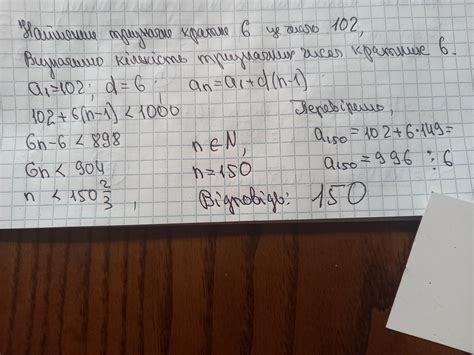 Найменше трицифрове кратне 6 це число 102,
Визначимо кількість трицифрових чисел кратних 6.
a₁=102; d=6; aₙ=a₁+d(n-1)
102+6(n-1)<1000
6n-6<898
6n<904
n<150 2/3,
n∈N,
n=150
Перевіримо,
a₁₅₀=102+6·149=
a₁₅₀=996 ⋮6
Відповідь: 150